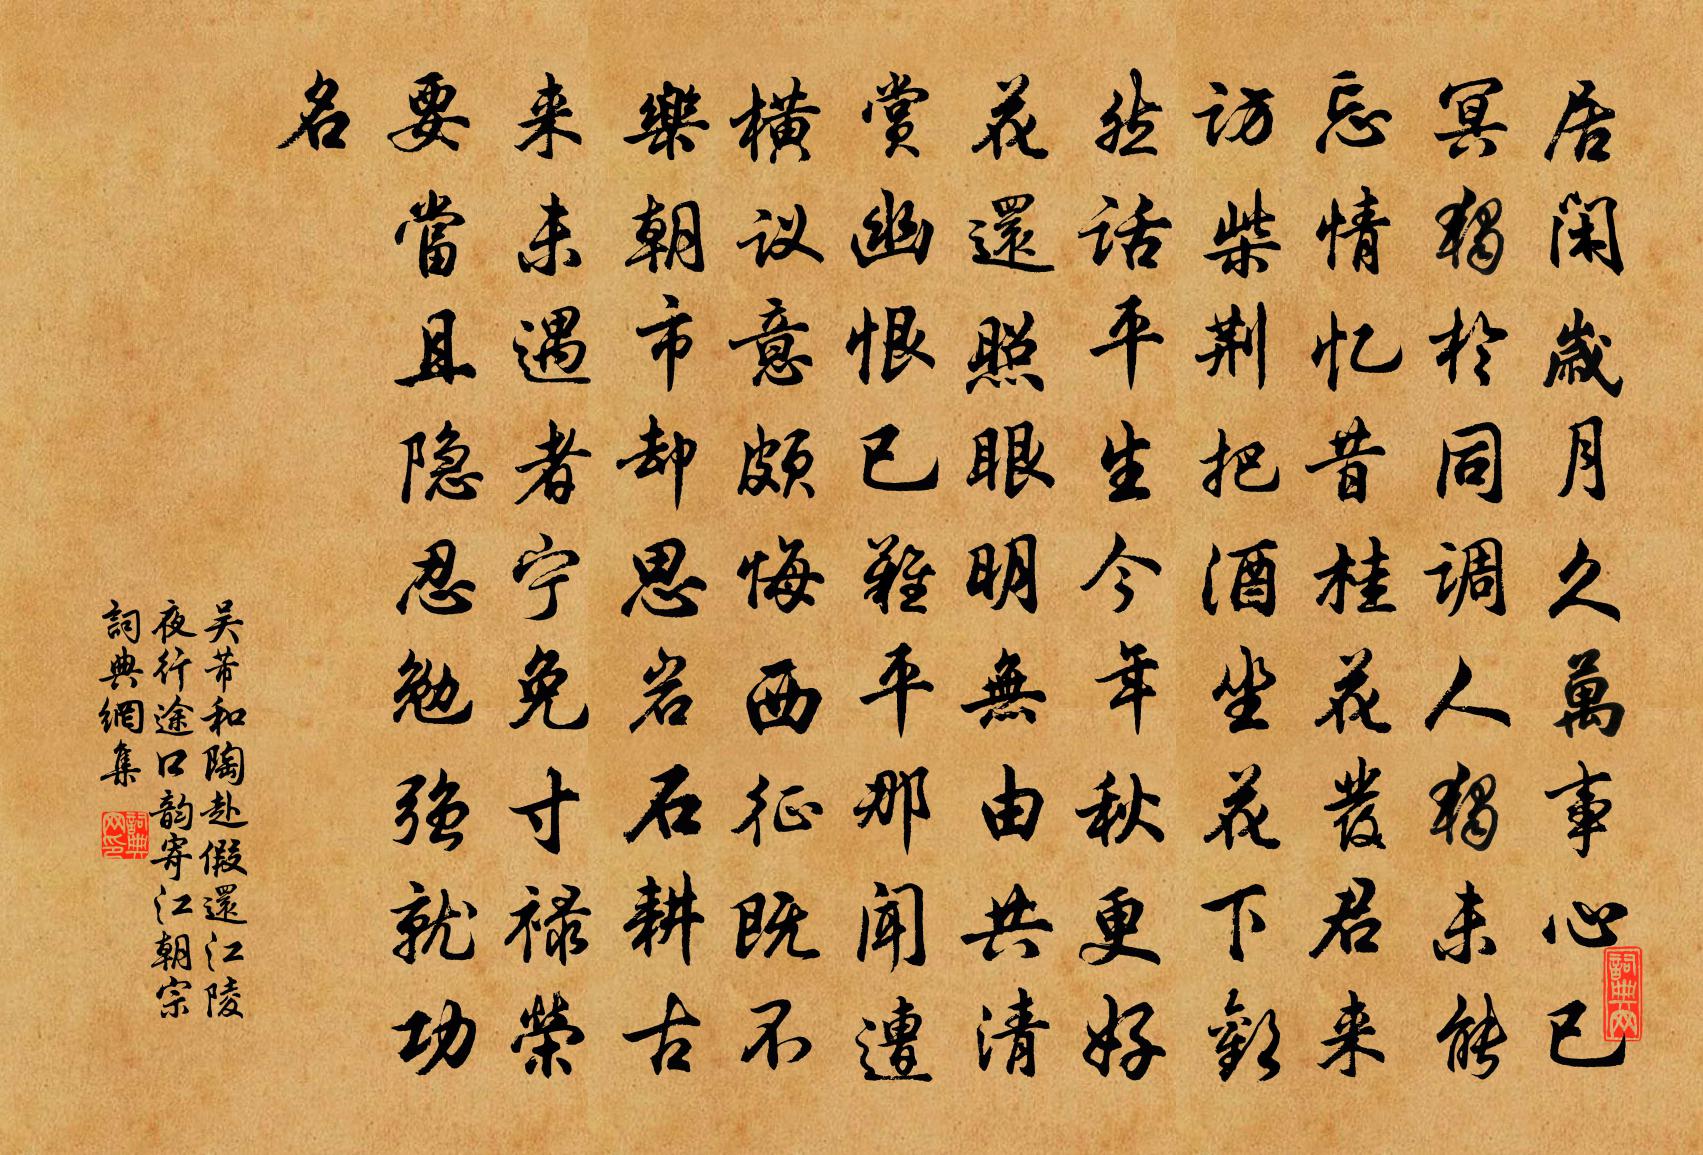 居闲歲月久萬事心已
冥獨於同調人獨未能
忘情忆昔桂花發君来
訪柴荆把酒坐花下歡
然話平生今年秋更好
花還照眼明無由共清
賞幽恨已難平那闻遭
橫议意頗悔西征既不
樂朝市却思岩石耕古
来未遇者宁免寸禄榮
要當且隐忍勉强就功
名
吴芾和陶赴假還江陵
夜行途口韵寄江朝宗
詞典網集
詞典网印
詞典网